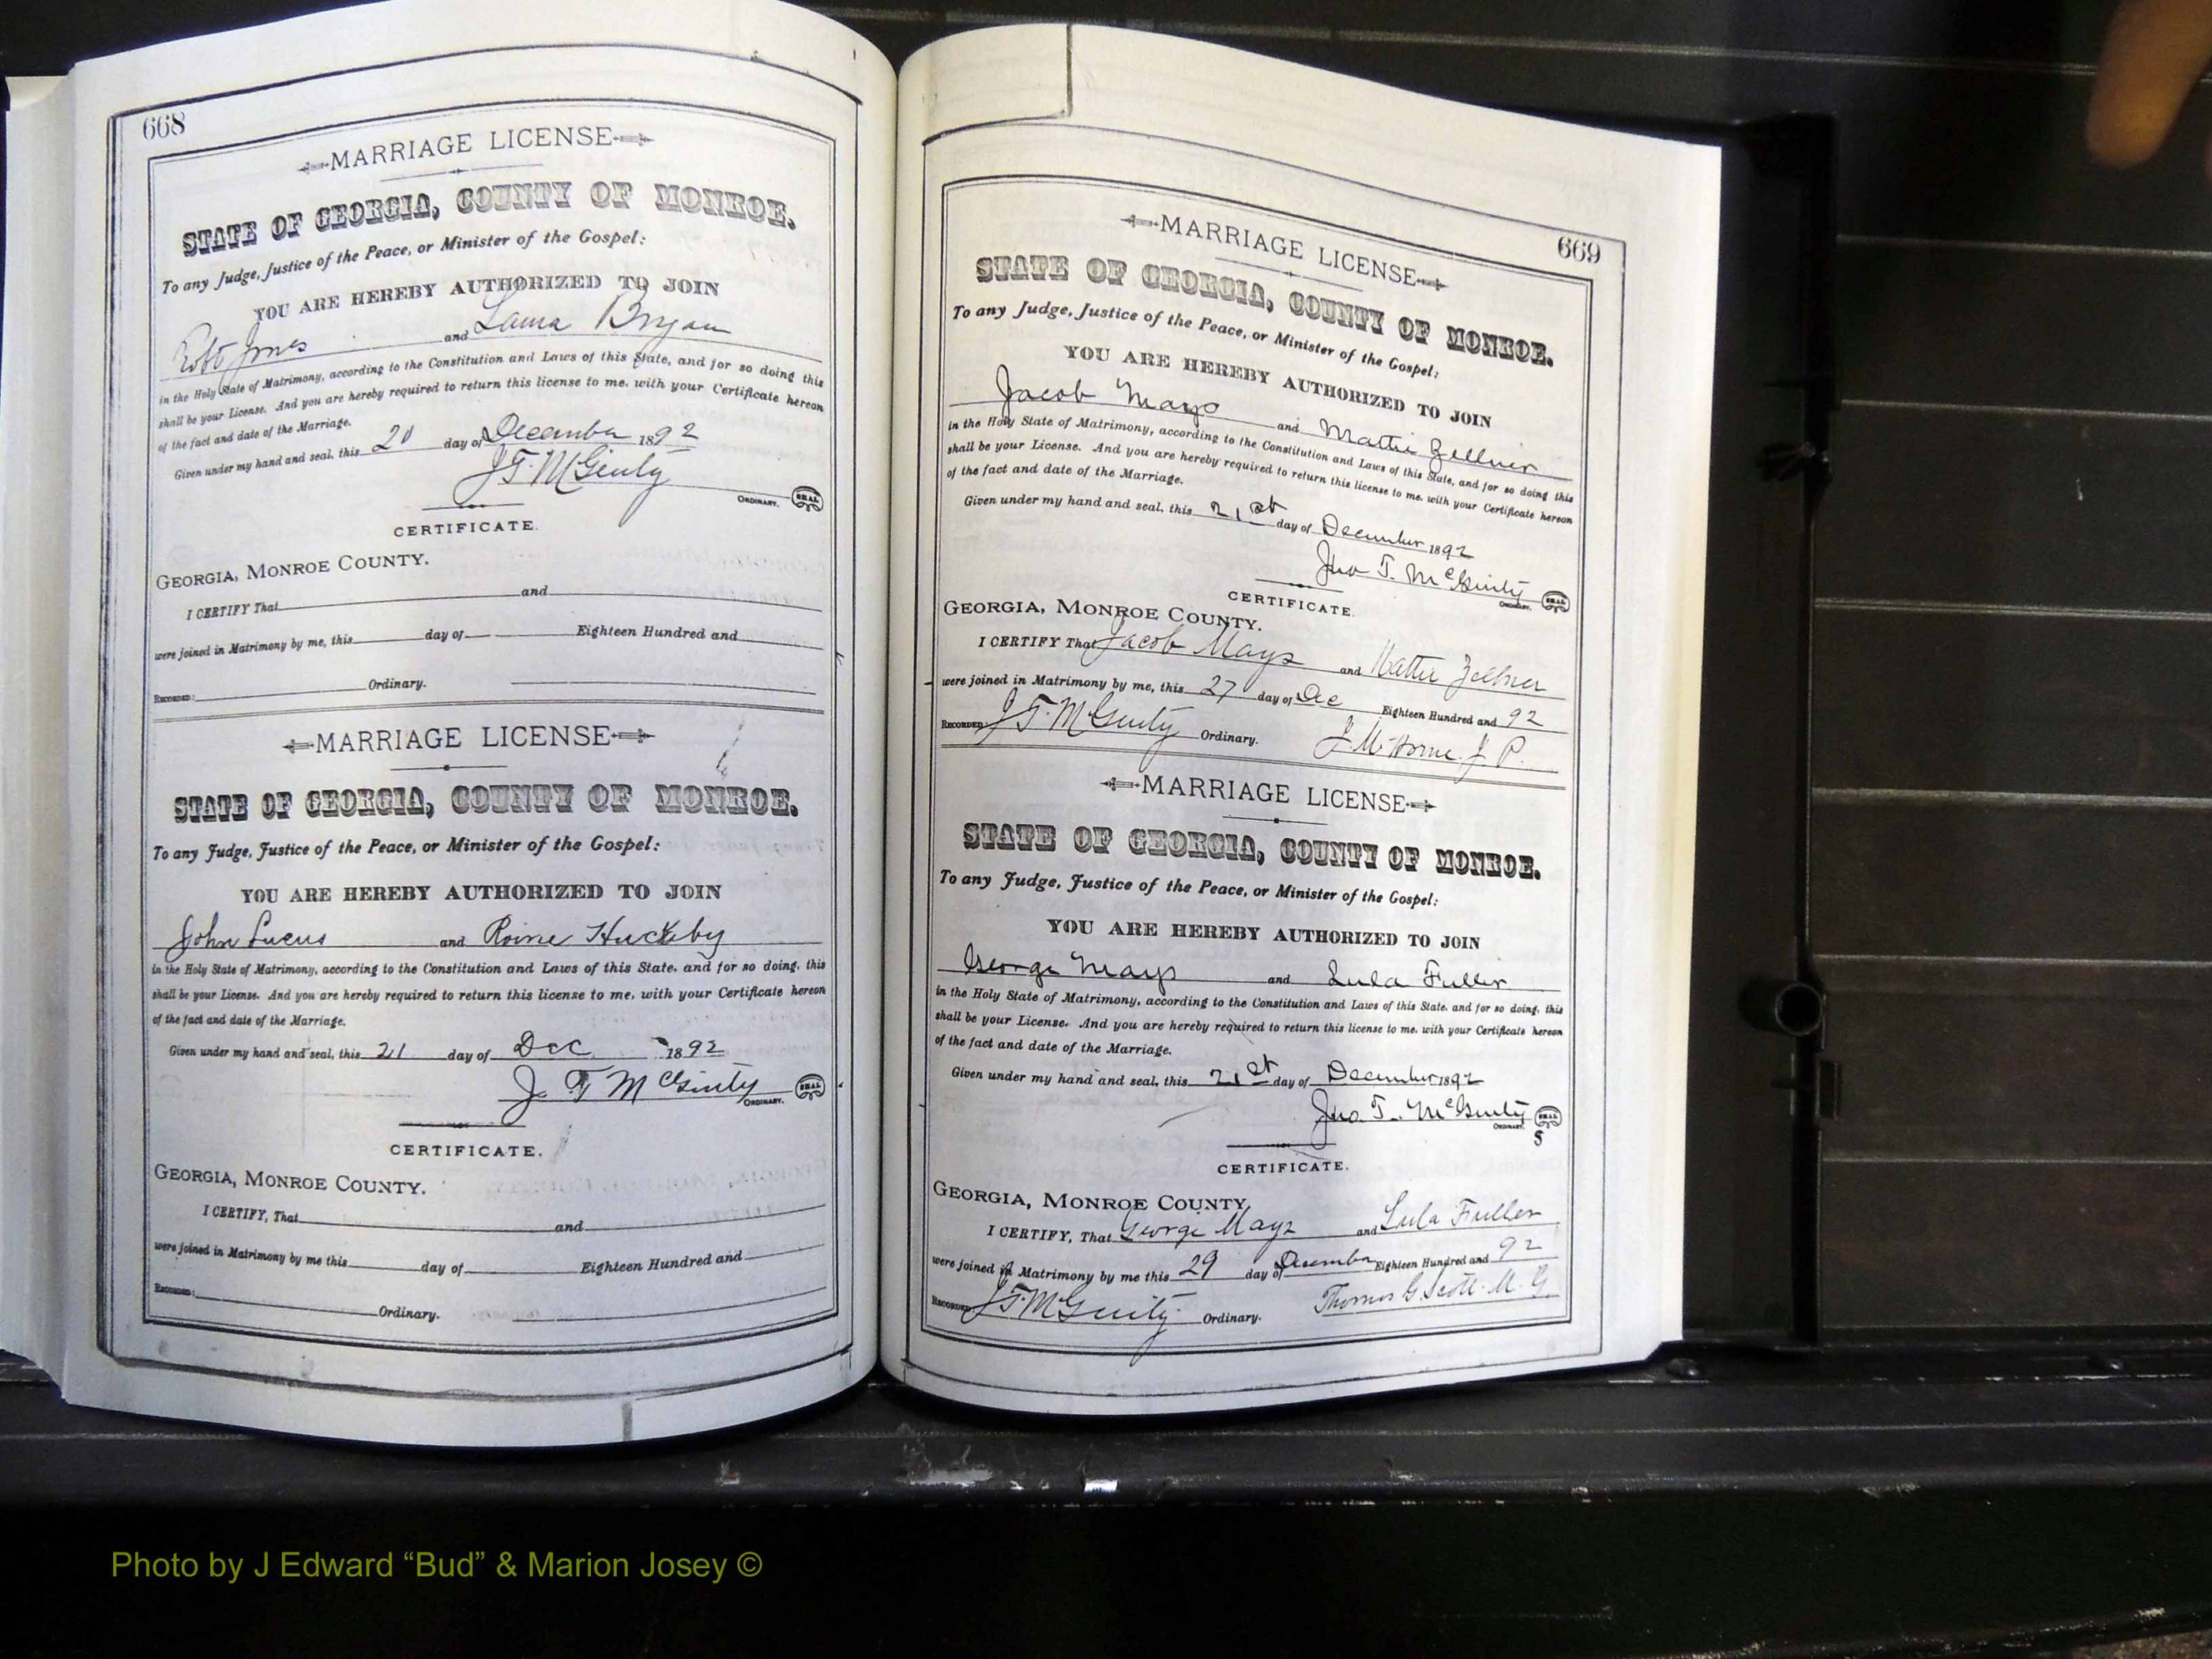 668
MARRIAGE LICENSE
STATE OF GEORGIA, COUNTY OF MONROE.
To any Judge, Justice of the Peace, or Minister of the Gospel:
YOU ARE HEREBY AUTHORIZED TO JOIN
Robt Jones and Laura Bryan
in the Holy State of Matrimony, according to the Constitution and Laws of this State, and for so doing this
shall be your License. And you are hereby required to return this license to me, with your Certificate hereon
of the fact and date of the Marriage.
Given under my hand and seal, this 20 day of December 1892
J T. McGinty
ORDINARY. SEAL
CERTIFICATE.
GEORGIA, MONROE COUNTY.
I CERTIFY That and
were joined in Matrimony by me, this day of Eighteen Hundred and
RECORDED: Ordinary.
MARRIAGE LICENSE
STATE OF GEORGIA, COUNTY OF MONROE.
To any Judge, Justice of the Peace, or Minister of the Gospel:
YOU ARE HEREBY AUTHORIZED TO JOIN
John Lucus and Huckeby
in the Holy State of Matrimony, according to the Constitution and Laws of this State, and for so doing, this
shall be your License. And you are hereby required to return this license to me, with your Certificate hereon
of the fact and date of the Marriage.
Given under my hand and seal, this 21 day of Dec 1892
J. T McGinty
ORDINARY. SEAL
CERTIFICATE.
GEORGIA, MONROE COUNTY.
I CERTIFY, That and
were joined in Matrimony by me this day of Eighteen Hundred and
RECORDED: Ordinary.
669
MARRIAGE LICENSE
STATE OF GEORGIA, COUNTY OF MONROE.
To any Judge, Justice of the Peace, or Minister of the Gospel:
YOU ARE HEREBY AUTHORIZED TO JOIN
Jacob Mays and Mattie Zellner
in the Holy State of Matrimony, according to the Constitution and Laws of this State, and for so doing this
shall be your License. And you are hereby required to return this license to me, with your Certificate hereon
of the fact and date of the Marriage.
Given under my hand and seal, this 21st day of December 1892
Jno T. McGinty
ORDINARY. SEAL
CERTIFICATE.
GEORGIA, MONROE COUNTY.
I CERTIFY That Jacob Mays and Mattie Zellner
were joined in Matrimony by me, this 27 day of Dec Eighteen Hundred and 92
RECORDED J T. McGinty Ordinary. J. M. Horne. J. P.
MARRIAGE LICENSE
STATE OF GEORGIA, COUNTY OF MONROE.
To any Judge, Justice of the Peace, or Minister of the Gospel:
YOU ARE HEREBY AUTHORIZED TO JOIN
George Mays and Lula Fuller
in the Holy State of Matrimony, according to the Constitution and Laws of this State, and for so doing, this
shall be your License. And you are hereby required to return this license to me, with your Certificate hereon
of the fact and date of the Marriage.
Given under my hand and seal, this 21st day of December 1892
Jno. T. McGinty
ORDINARY. SEAL
CERTIFICATE.
GEORGIA, MONROE COUNTY.
I CERTIFY, That George Mays and Lula Fuller
were joined in Matrimony by me this 29 day of December Eighteen Hundred and 92
RECORDED J T. McGinty Ordinary. Thomas G. Scott. M. G.
Photo by J Edward “Bud” & Marion Josey ©